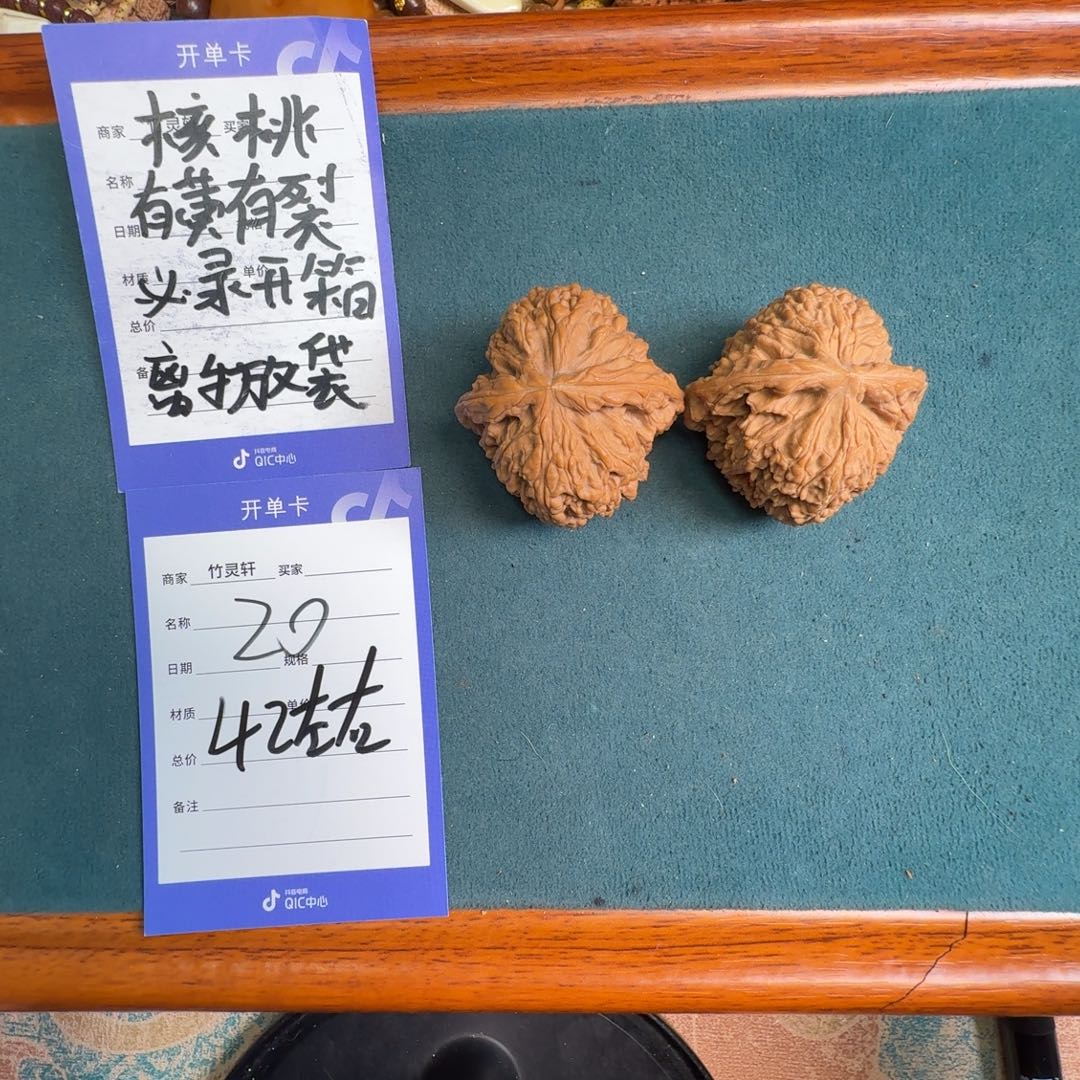 开单卡
商家 买家
核桃
名称
有黄有裂
日期
材质 单价
必录开箱
总价
离手放袋
抖音电商
QIC中心
开单卡
商家 竹灵轩 买家
名称
20
日期 规格
材质 单价
42左右
总价
备注
抖音电商
QIC中心